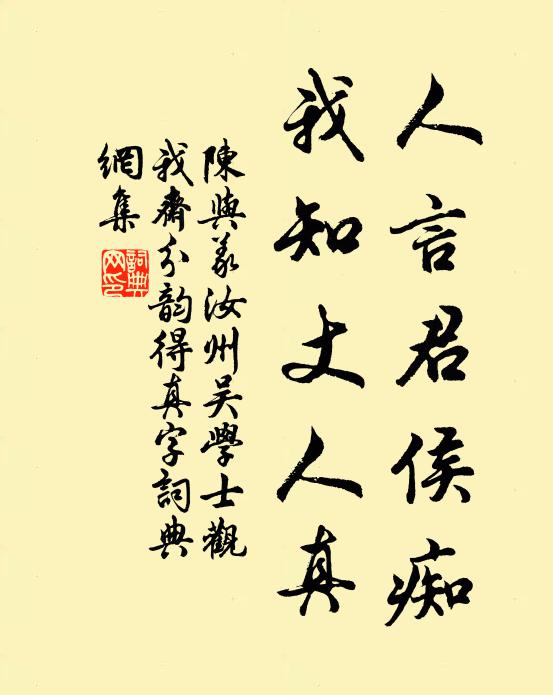 人言君侯痴
我知丈人真
陳與義汝州吳學士觀
我齋分韵得真字詞典
網集
詞典網印